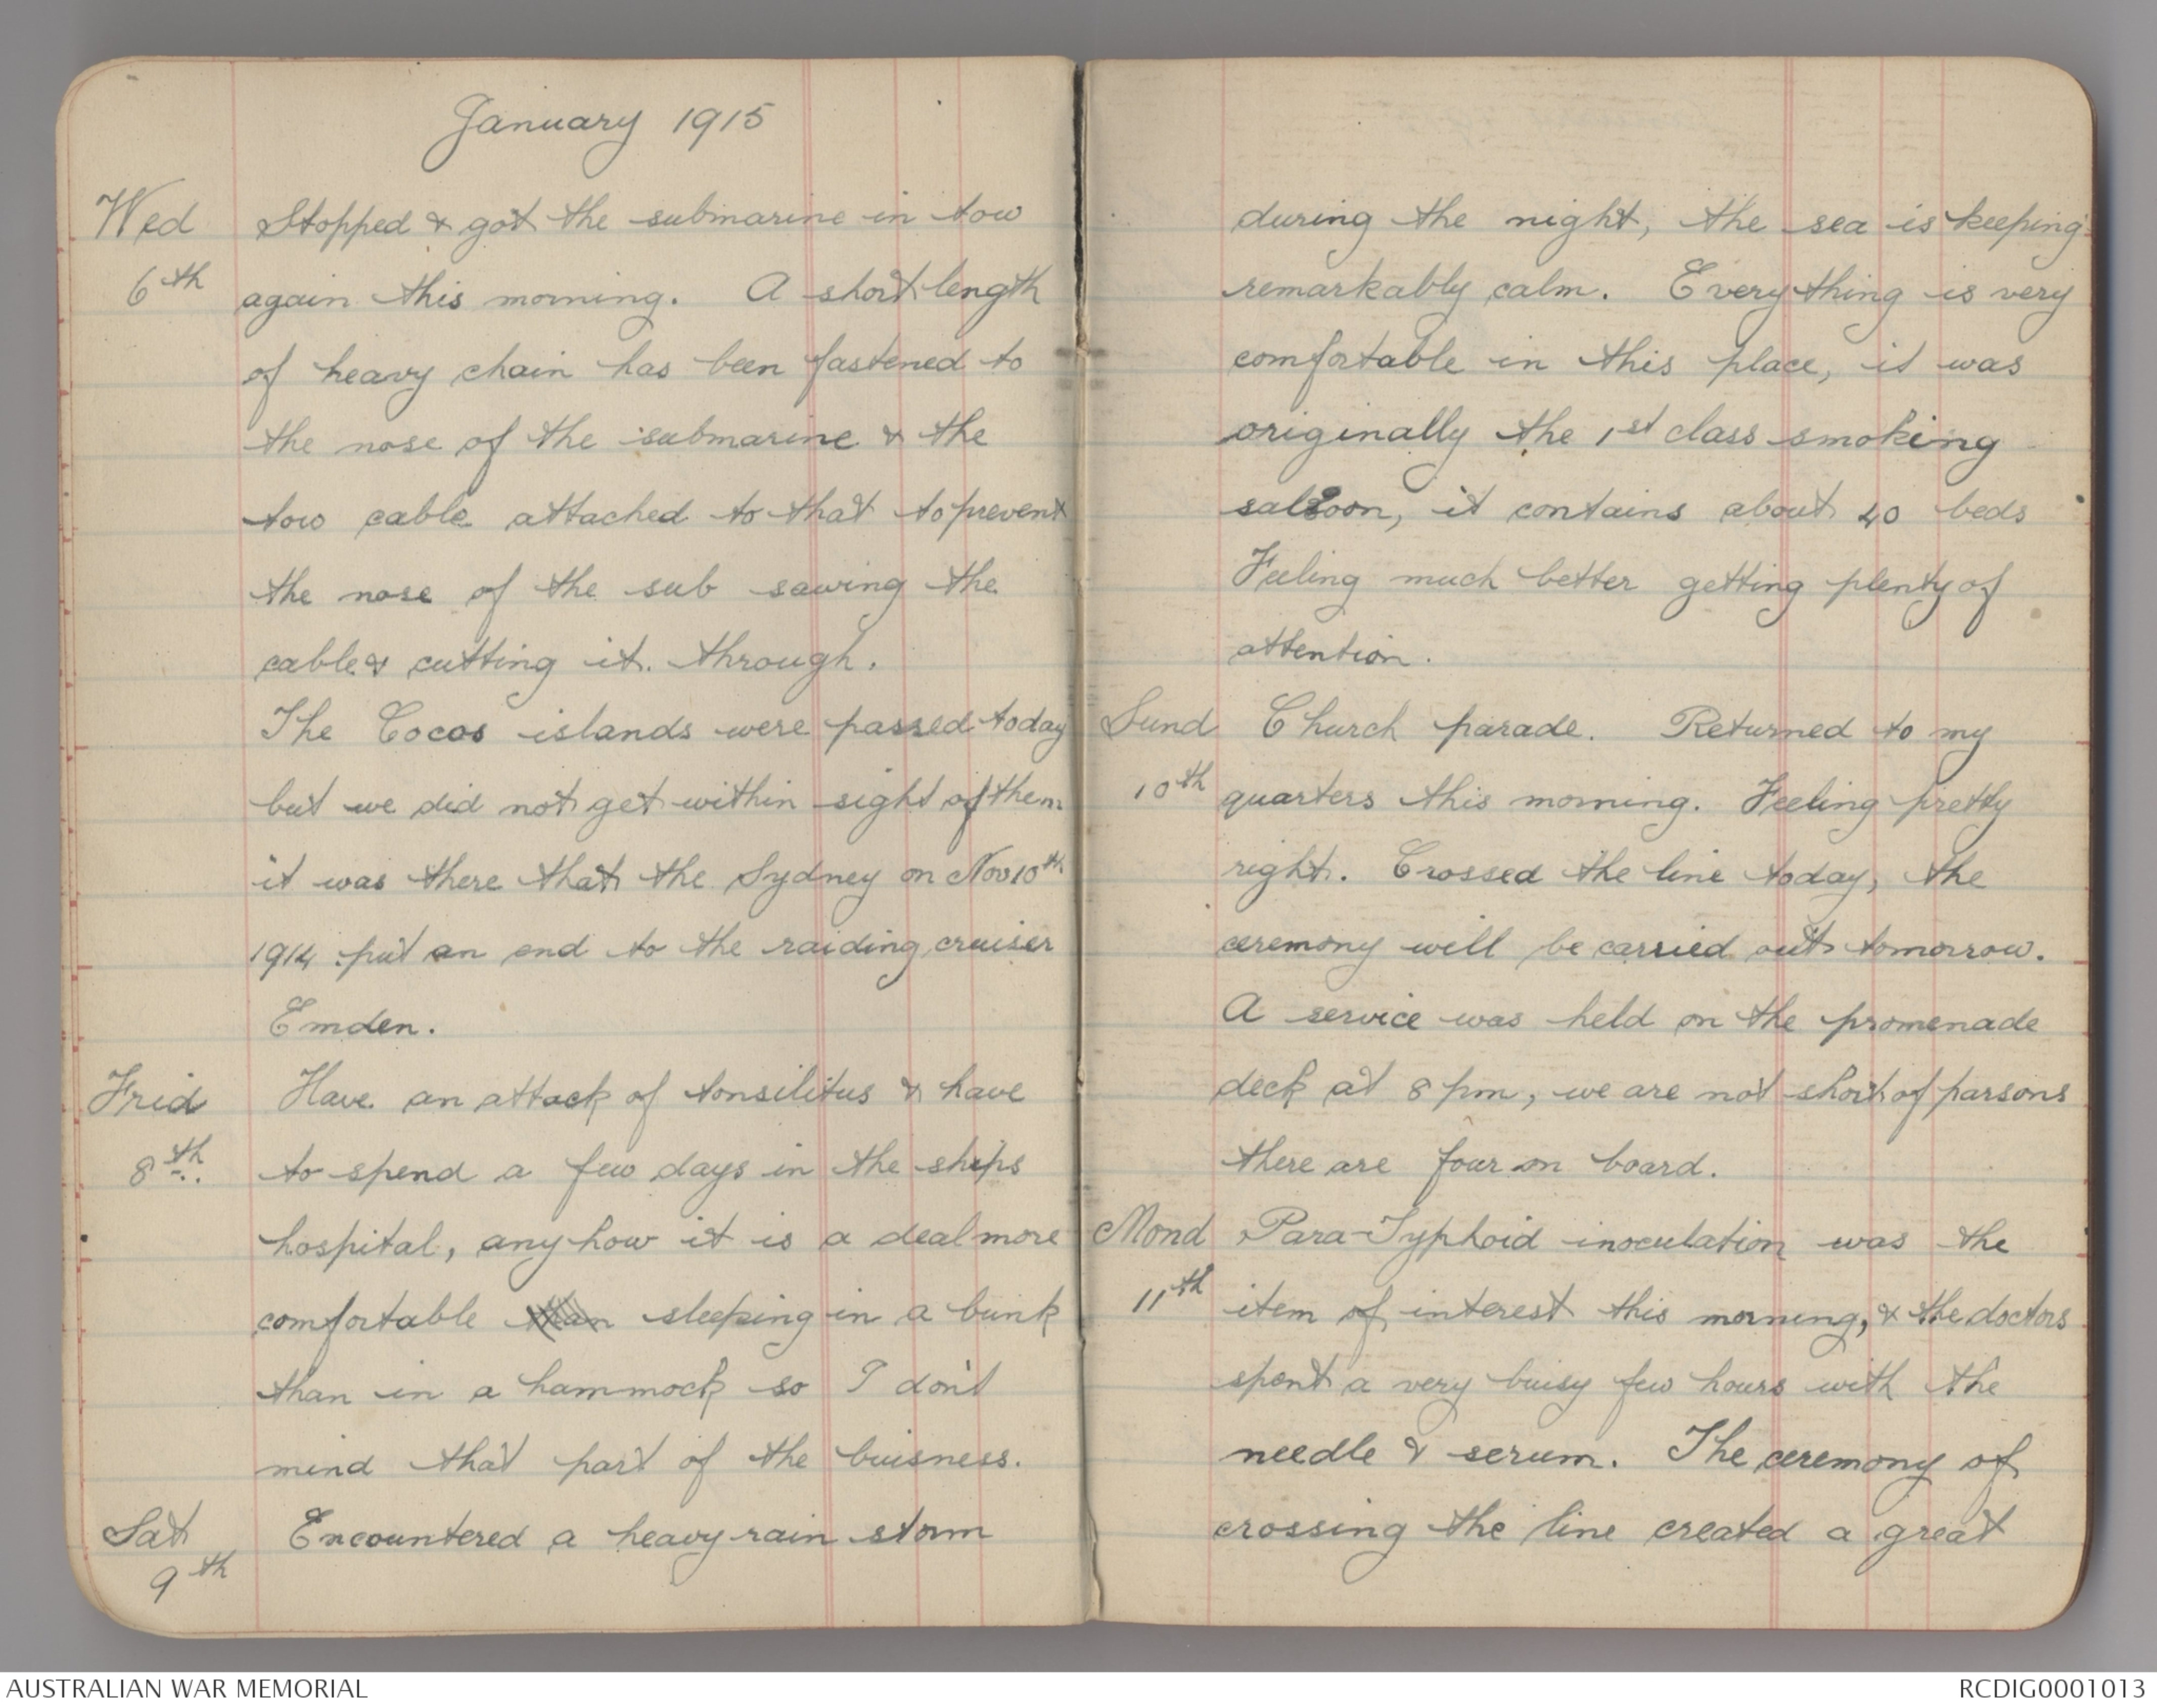 January 1915
Wed Stopped & got the submarine in tow
6th again this morning. A short length
of heavy chain has been fastened to
the nose of the submarine & the
tow cable attached to that to prevent
the nose of the sub sawing the
cable & cutting it. through.
The Cocos islands were passed today
but we did not get within sight of them.
it was there that the Sydney on Nov 10th
1914 put an end to the raiding cruiser
Emden.
Frid Have an attack of tonsilitus & have
8th to spend a few days in the ships
hospital, anyhow it is a deal more
comfortable than sleeping in a bunk
than in a hammock so I don't
mind that part of the buisness.
Sat Encountered a heavy rain storm
9th
during the night, the sea is keeping
remarkably calm. Everything is very
comfortable in this place, it was
originally the 1st class smoking
saloon, it contains about 40 beds
Feeling much better getting plenty of
attention.
Sund Church parade. Returned to my
10th quarters this morning. Feeling pretty
right. Crossed the line today, the
ceremony will be carried out tomorrow.
A service was held on the promenade
deck at 8 pm, we are not short of parsons
there are four on board.
Mond Para-Typhoid inoculation was the
11th item of interest this morning, & the doctors
spent a very buisy few hours with the
needle & serum. The ceremony of
crossing the line created a great
AUSTRALIAN WAR MEMORIAL
RCDIG0001013